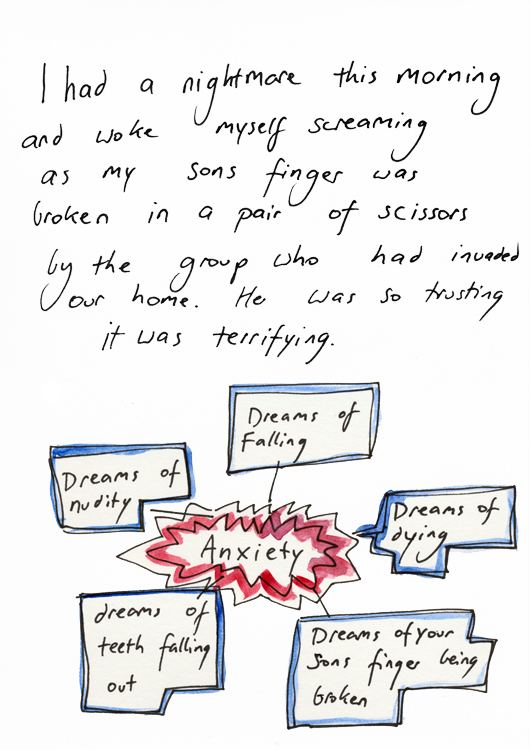 I had a nightmare this morning
and woke myself screaming
as my sons finger was
broken in a pair of scissors
by the group who had invaded
our home. He was so trusting
it was terrifying.
Dreams of
Falling
Dreams of
nudity
Dreams of
dying
Anxiety
dreams of
teeth falling
out
Dreams of your
Sons finger being
broken